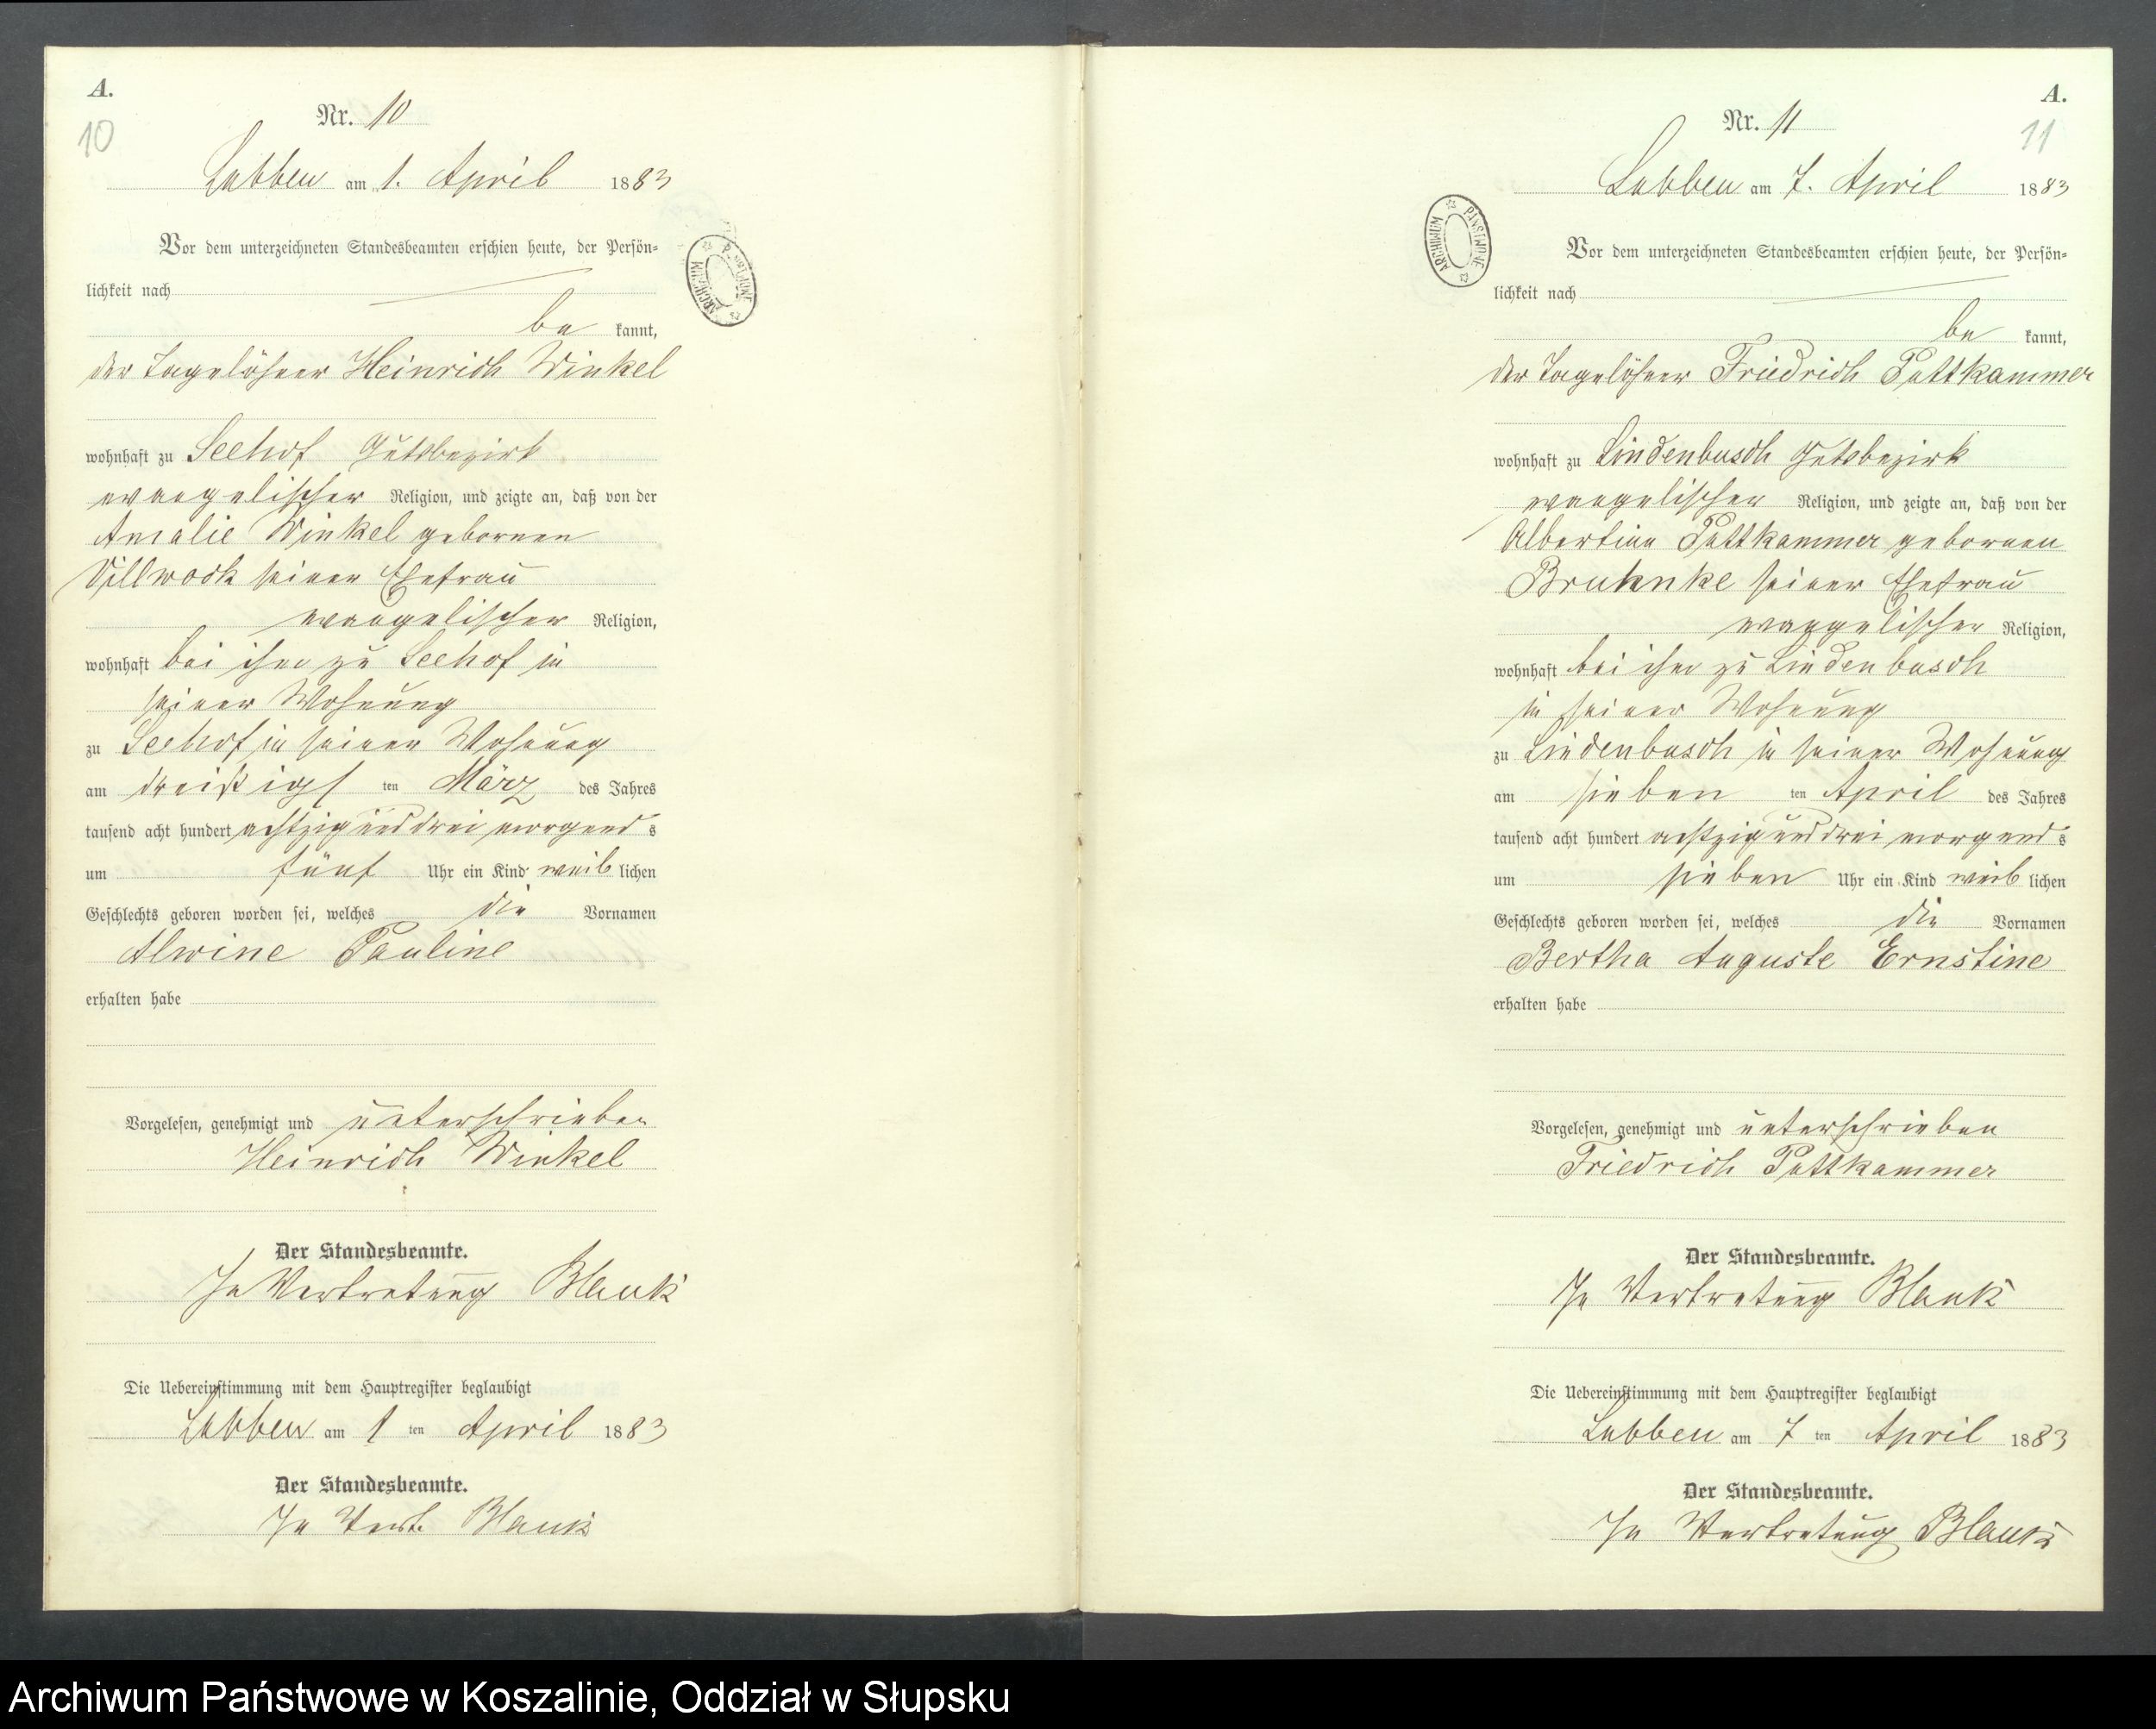 A.
10
Nr. 10
Lubben am 1. April 1883
Vor dem unterzeichneten Standesbeamten erschien heute, der Persön-
lichkeit nach
be kannt,
der Tagelöhner Heinrich Winkel
wohnhaft zu Seehof Gutsbezirk
evangelischer Religion, und zeigte an, daß von der
Amalie Winkel geborenen
Villwock seiner Ehefrau
evangelischer Religion,
wohnhaft bei ihm zu Seehof in
seiner Wohnung
zu Seehof in seiner Wohnung
am dreißigs ten März des Jahres
tausend acht hundert achtzig und drei morgends
um fünf Uhr ein Kind weib lichen
Geschlechts geboren worden sei, welches die Vornamen
Alwine Pauline
erhalten habe
Vorgelesen, genehmigt und unterschrieben
Heinrich Winkel
Der Standesbeamte.
In Vertretung Blank
Die Uebereinstimmung mit dem Hauptregister beglaubigt
Lubben am 1 ten April 1883
Der Standesbeamte.
In Vert. Blank
ARCHIWUM PAŃSTWOWE
A.
11
Nr. 11
Lubben am 7. April 1883
Vor dem unterzeichneten Standesbeamten erschien heute, der Persön-
lichkeit nach
be kannt,
der Tagelöhner Friedrich Puttkammer
wohnhaft zu Lindenbusch Gutsbezirk
evangelischer Religion, und zeigte an, daß von der
Albertine Puttkammer geborenen
Bruhnke seiner Ehefrau
evangelischer Religion,
wohnhaft bei ihm zu Lindenbusch
in seiner Wohnung
zu Lindenbusch in seiner Wohnung
am sieben ten April des Jahres
tausend acht hundert achtzig und drei morgends
um sieben Uhr ein Kind weib lichen
Geschlechts geboren worden sei, welches die Vornamen
Bertha Auguste Ernstine
erhalten habe
Vorgelesen, genehmigt und unterschrieben
Friedrich Puttkammer
Der Standesbeamte.
In Vertretung Blank
Die Uebereinstimmung mit dem Hauptregister beglaubigt
Lubben am 7 ten April 1883
Der Standesbeamte.
In Vertretung Blank
ARCHIWUM PAŃSTWOWE
Archiwum Państwowe w Koszalinie, Oddział w Słupsku